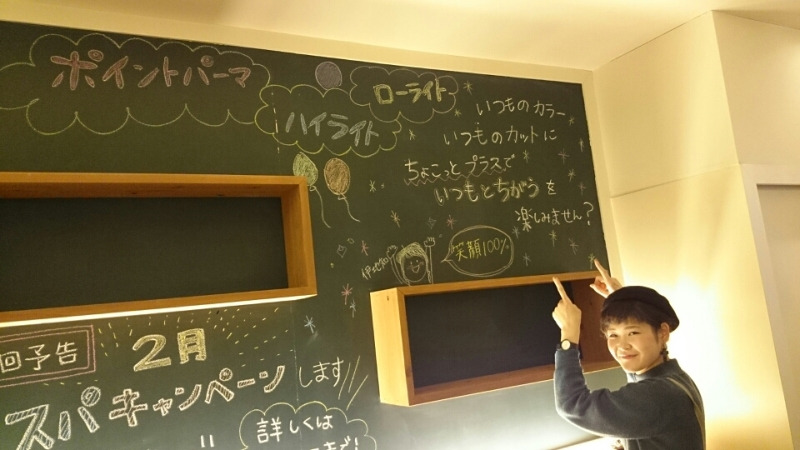 ポイントパーマ
ハイライト
ローライト
いつものカラー
いつものカットに
ちょこっとプラスで
いつもとちがうを
楽しみません?
伊地知
笑顔100%
回予告
2月
スパキャンペーン
します
詳しくは